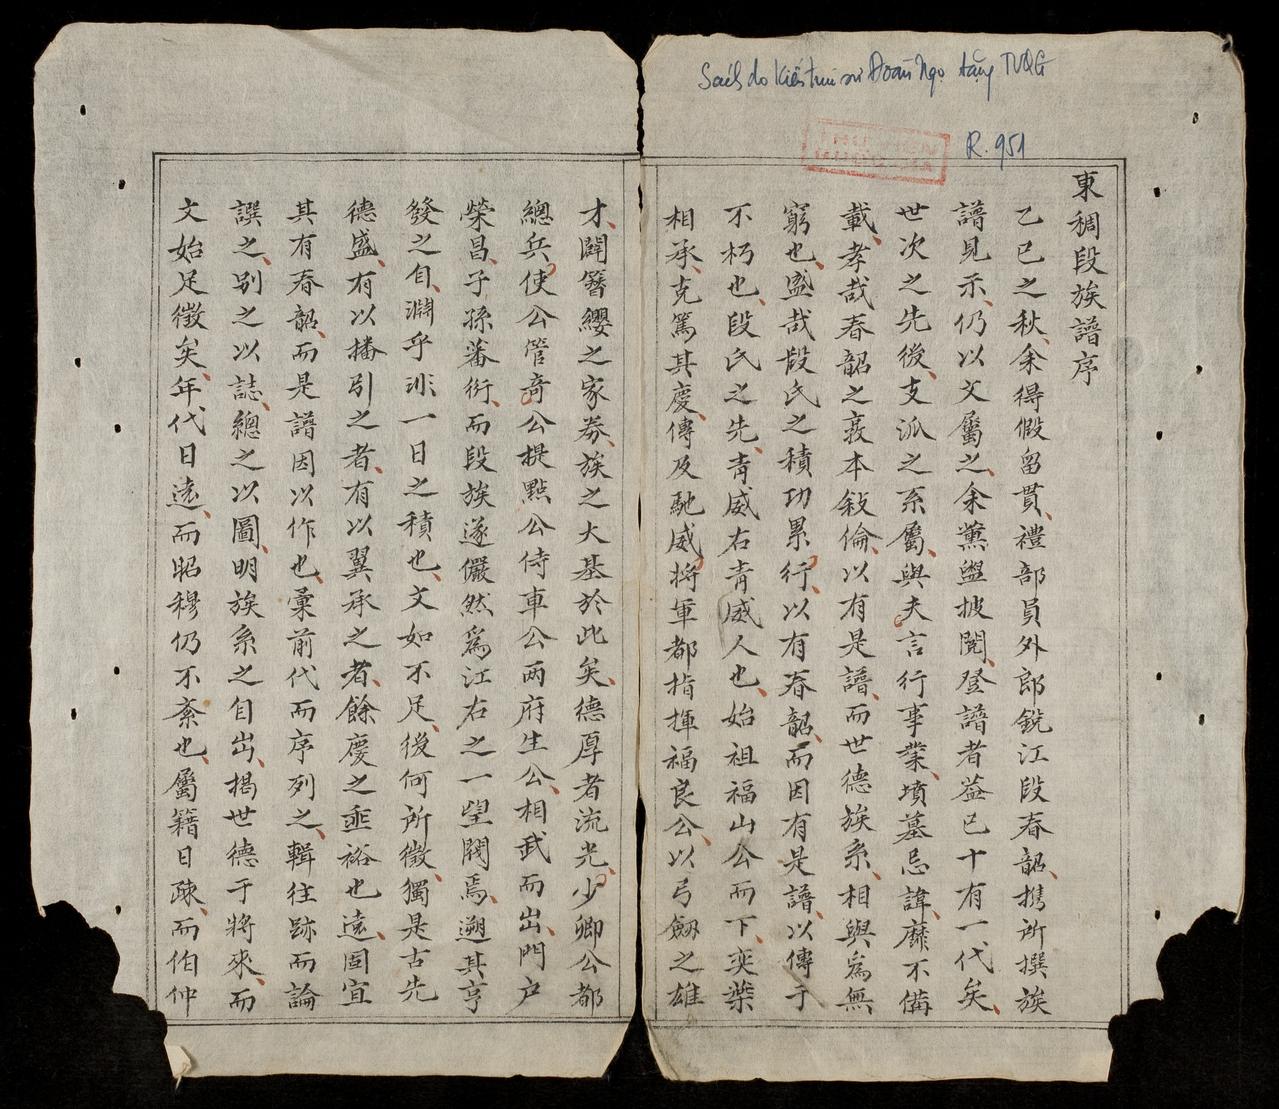 Sách do Kiến trúc sư Đoàn Ngọ tặng TVQG
R. 951
東稠段族譜序
乙巳之秋余得假留貫禮部員外郎銳江段春韶携所撰族
譜見示仍以文屬之余薰盥披閱登譜者益已十有一代矣
世次之先後支派之系屬與夫言行事業墳墓忌諱靡不備
載孝哉春韶之 本敍倫以有是譜而世德族系相與爲無
窮也盛哉段氏之積功累行以有春韶而因有是譜以傳于
不朽也段氏之先青威右青威人也始祖福山公而下奕葉
相承克篤其慶傳及馳威將軍都指揮福良公以弓劔之雄
才闢簪纓之家劵族之大基於此矣德厚者流光少卿公都
總兵使公管奇公提點公侍車公两府生公相武而出門户
榮昌子孫蕃衍而段族遂儼然爲江右之一望閥焉遡其亨
發之自淵乎 一日之積也文如不足後何所徵獨是古先
德盛有以播引之者有以翼承之者餘慶之垂裕也遠固宜
其有春韶而是譜因以作也彙前代而序列之輯往跡而論
譔之别之以誌總之以圖明族系之自出揭世德于將來而
文始足徵矣年代日遠而昭穆仍不紊也屬籍日疎而伯仲